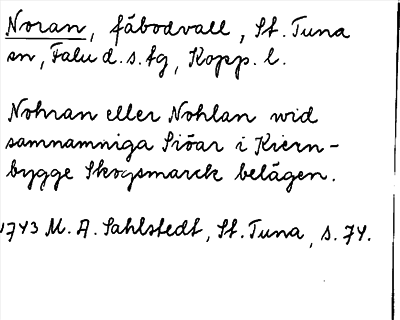 Noran, fäbodvall, St. Tuna
sn, Falu d. s. fg, Kopp. l.
Nohran eller Nohlan wid
samnamniga Siöar i Kiern-
bygge Skogsmarck belägen.
1743 M. A. Sahlstedt, St. Tuna, s. 74.